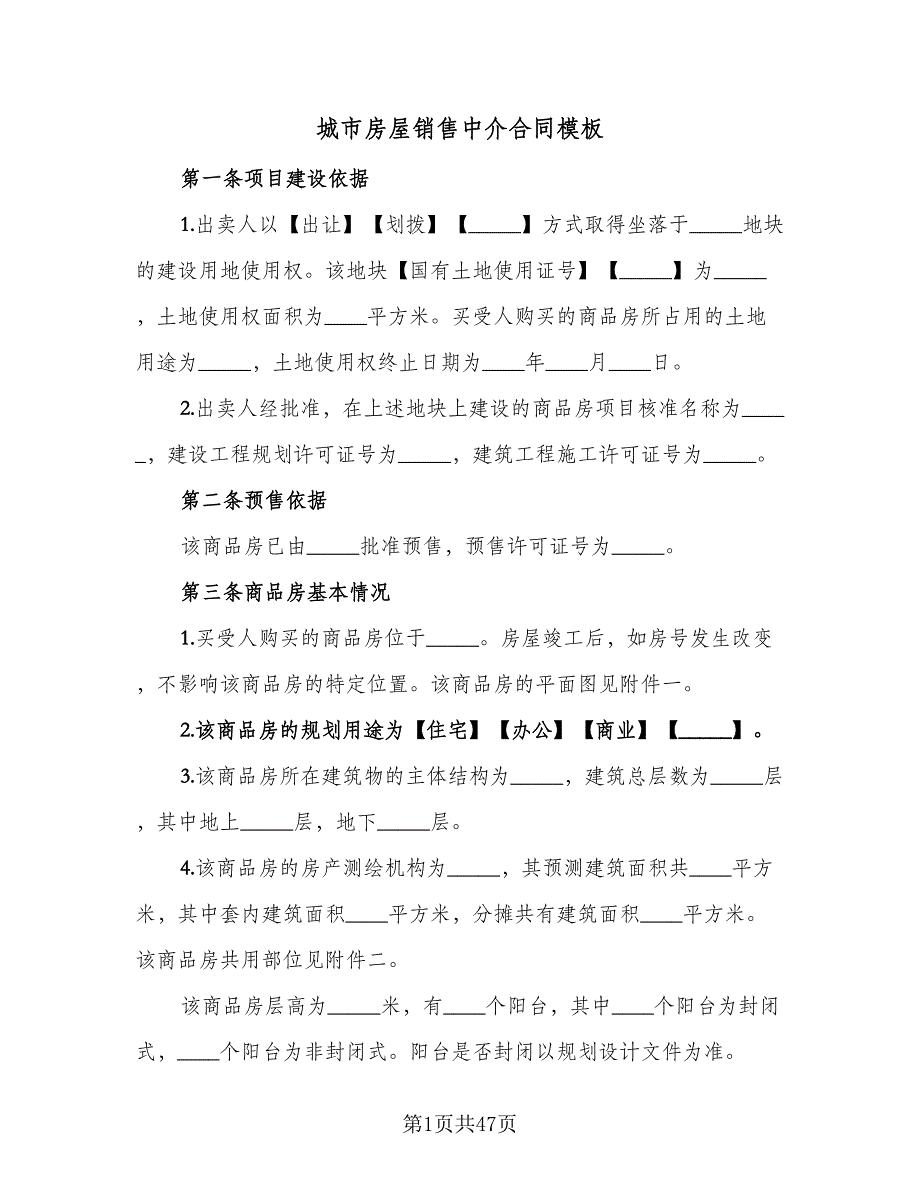 城市房屋销售中介合同模板
第一条项目建设依据
1.出卖人以【出让】【划拨】【_____】方式取得坐落于_____地块
的建设用地使用权。该地块【国有土地使用证号】【_____】为_____
，土地使用权面积为____平方米。买受人购买的商品房所占用的土地
用途为_____，土地使用权终止日期为____年____月____日。
2.出卖人经批准，在上述地块上建设的商品房项目核准名称为____
_，建设工程规划许可证号为_____，建筑工程施工许可证号为_____。
第二条预售依据
该商品房已由_____批准预售，预售许可证号为_____。
第三条商品房基本情况
1.买受人购买的商品房位于_____。房屋竣工后，如房号发生改变
，不影响该商品房的特定位置。该商品房的平面图见附件一。
2.该商品房的规划用途为【住宅】【办公】【商业】【_____】。
3.该商品房所在建筑物的主体结构为_____，建筑总层数为_____层
，其中地上_____层，地下_____层。
4.该商品房的房产测绘机构为_____，其预测建筑面积共____平方
米，其中套内建筑面积____平方米，分摊共有建筑面积____平方米。
该商品房共用部位见附件二。
该商品房层高为_____米，有____个阳台，其中____个阳台为封闭
式，____个阳台为非封闭式。阳台是否封闭以规划设计文件为准。
第1页共47页